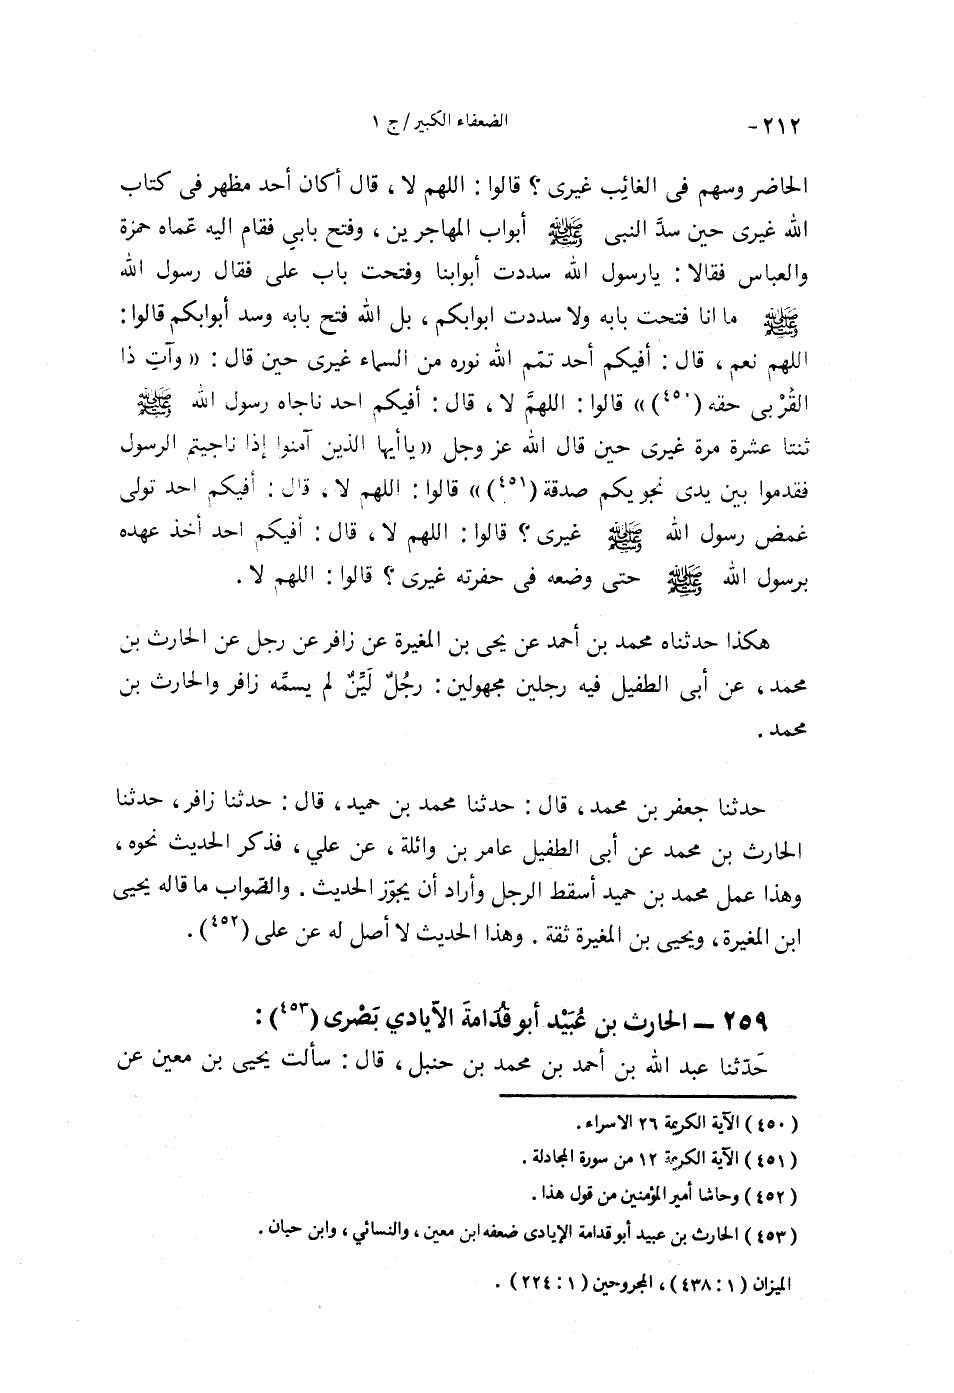 ٢١٢- الضعفاء الكبير / ج ١
الحاضر وسهم فى الغائِب غيرى ؟ قالوا : اللهم لا ، قال أكان أحد مظهر فى كتاب
الله غيرى حين سدَّ النبى ﷺ أبواب المهاجرين ، وفتح بابي فقام اليه عمّاه حمزة
والعباس فقالا : يارسول الله سددت أبوابنا وفتحت باب على فقال رسول الله
ﷺ ما انا فتحت بابه ولا سددت ابوابكم ، بل الله فتح بابه وسد أبوابكم قالوا :
اللهم نعم ، قال : أفيكم أحد تمّم الله نوره من السماء غيرى حين قال : « وآتِ ذا
القُرْبى حقه (٤٥٠) » قالوا : اللهمَّ لا ، قال : أفيكم احد ناجاه رسول الله ﷺ
ثنتا عشرة مرة غيرى حين قال الله عز وجل « ياأيها الذين آمنوا إذا ناجيتم الرسول
فقدموا بين يدى نجويكم صدقة (٤٥١) » قالوا : اللهم لا ، قال : أفيكم احد تولى
غمض رسول الله ﷺ غيرى ؟ قالوا : اللهم لا ، قال : أفيكم احد أخذ عهده
برسول الله ﷺ حتى وضعه فى حفرته غيرى ؟ قالوا : اللهم لا .
هكذا حدثناه محمد بن أحمد عن يحى بن المغيرة عن زافر عن رجل عن الحارث بن
محمد ، عن أبى الطفيل فيه رجلين مجهولين : رجُلٌ لَيِّنٌ لم يسمِّه زافر والحارث بن
محمد .
حدثنا جعفر بن محمد ، قال : حدثنا محمد بن حميد ، قال : حدثنا زافر ، حدثنا
الحارث بن محمد عن أبى الطفيل عامر بن واثلة ، عن علي ، فذكر الحديث نحوه ،
وهذا عمل محمد بن حميد أسقط الرجل وأراد أن يجوّز الحديث . والصّواب ما قاله يحيى
ابن المغيرة ، ويحيى بن المغيرة ثقة . وهذا الحديث لا أصل له عن على (٤٥٢) .
٢٥٩ — الحارث بن عُبَيْد أبو قُدَامةَ الآيادي بَصْرى (٤٥٣) :
حَدّثنا عبد الله بن أحمد بن محمد بن حنبل ، قال : سألت يحيى بن معين عن
(٤٥٠) الآية الكريمة ٢٦ الاسراء .
(٤٥١) الآية الكريمة ١٢ من سورة المجادلة .
(٤٥٢) وحاشا أمير المؤمنين من قول هذا .
(٤٥٣) الحارث بن عبيد أبو قدامة الإيادى ضعفه ابن معين ، والنسائي ، وابن حيان .
الميزان (١ : ٤٣٨) ، المجروحين (١ : ٢٢٤) .